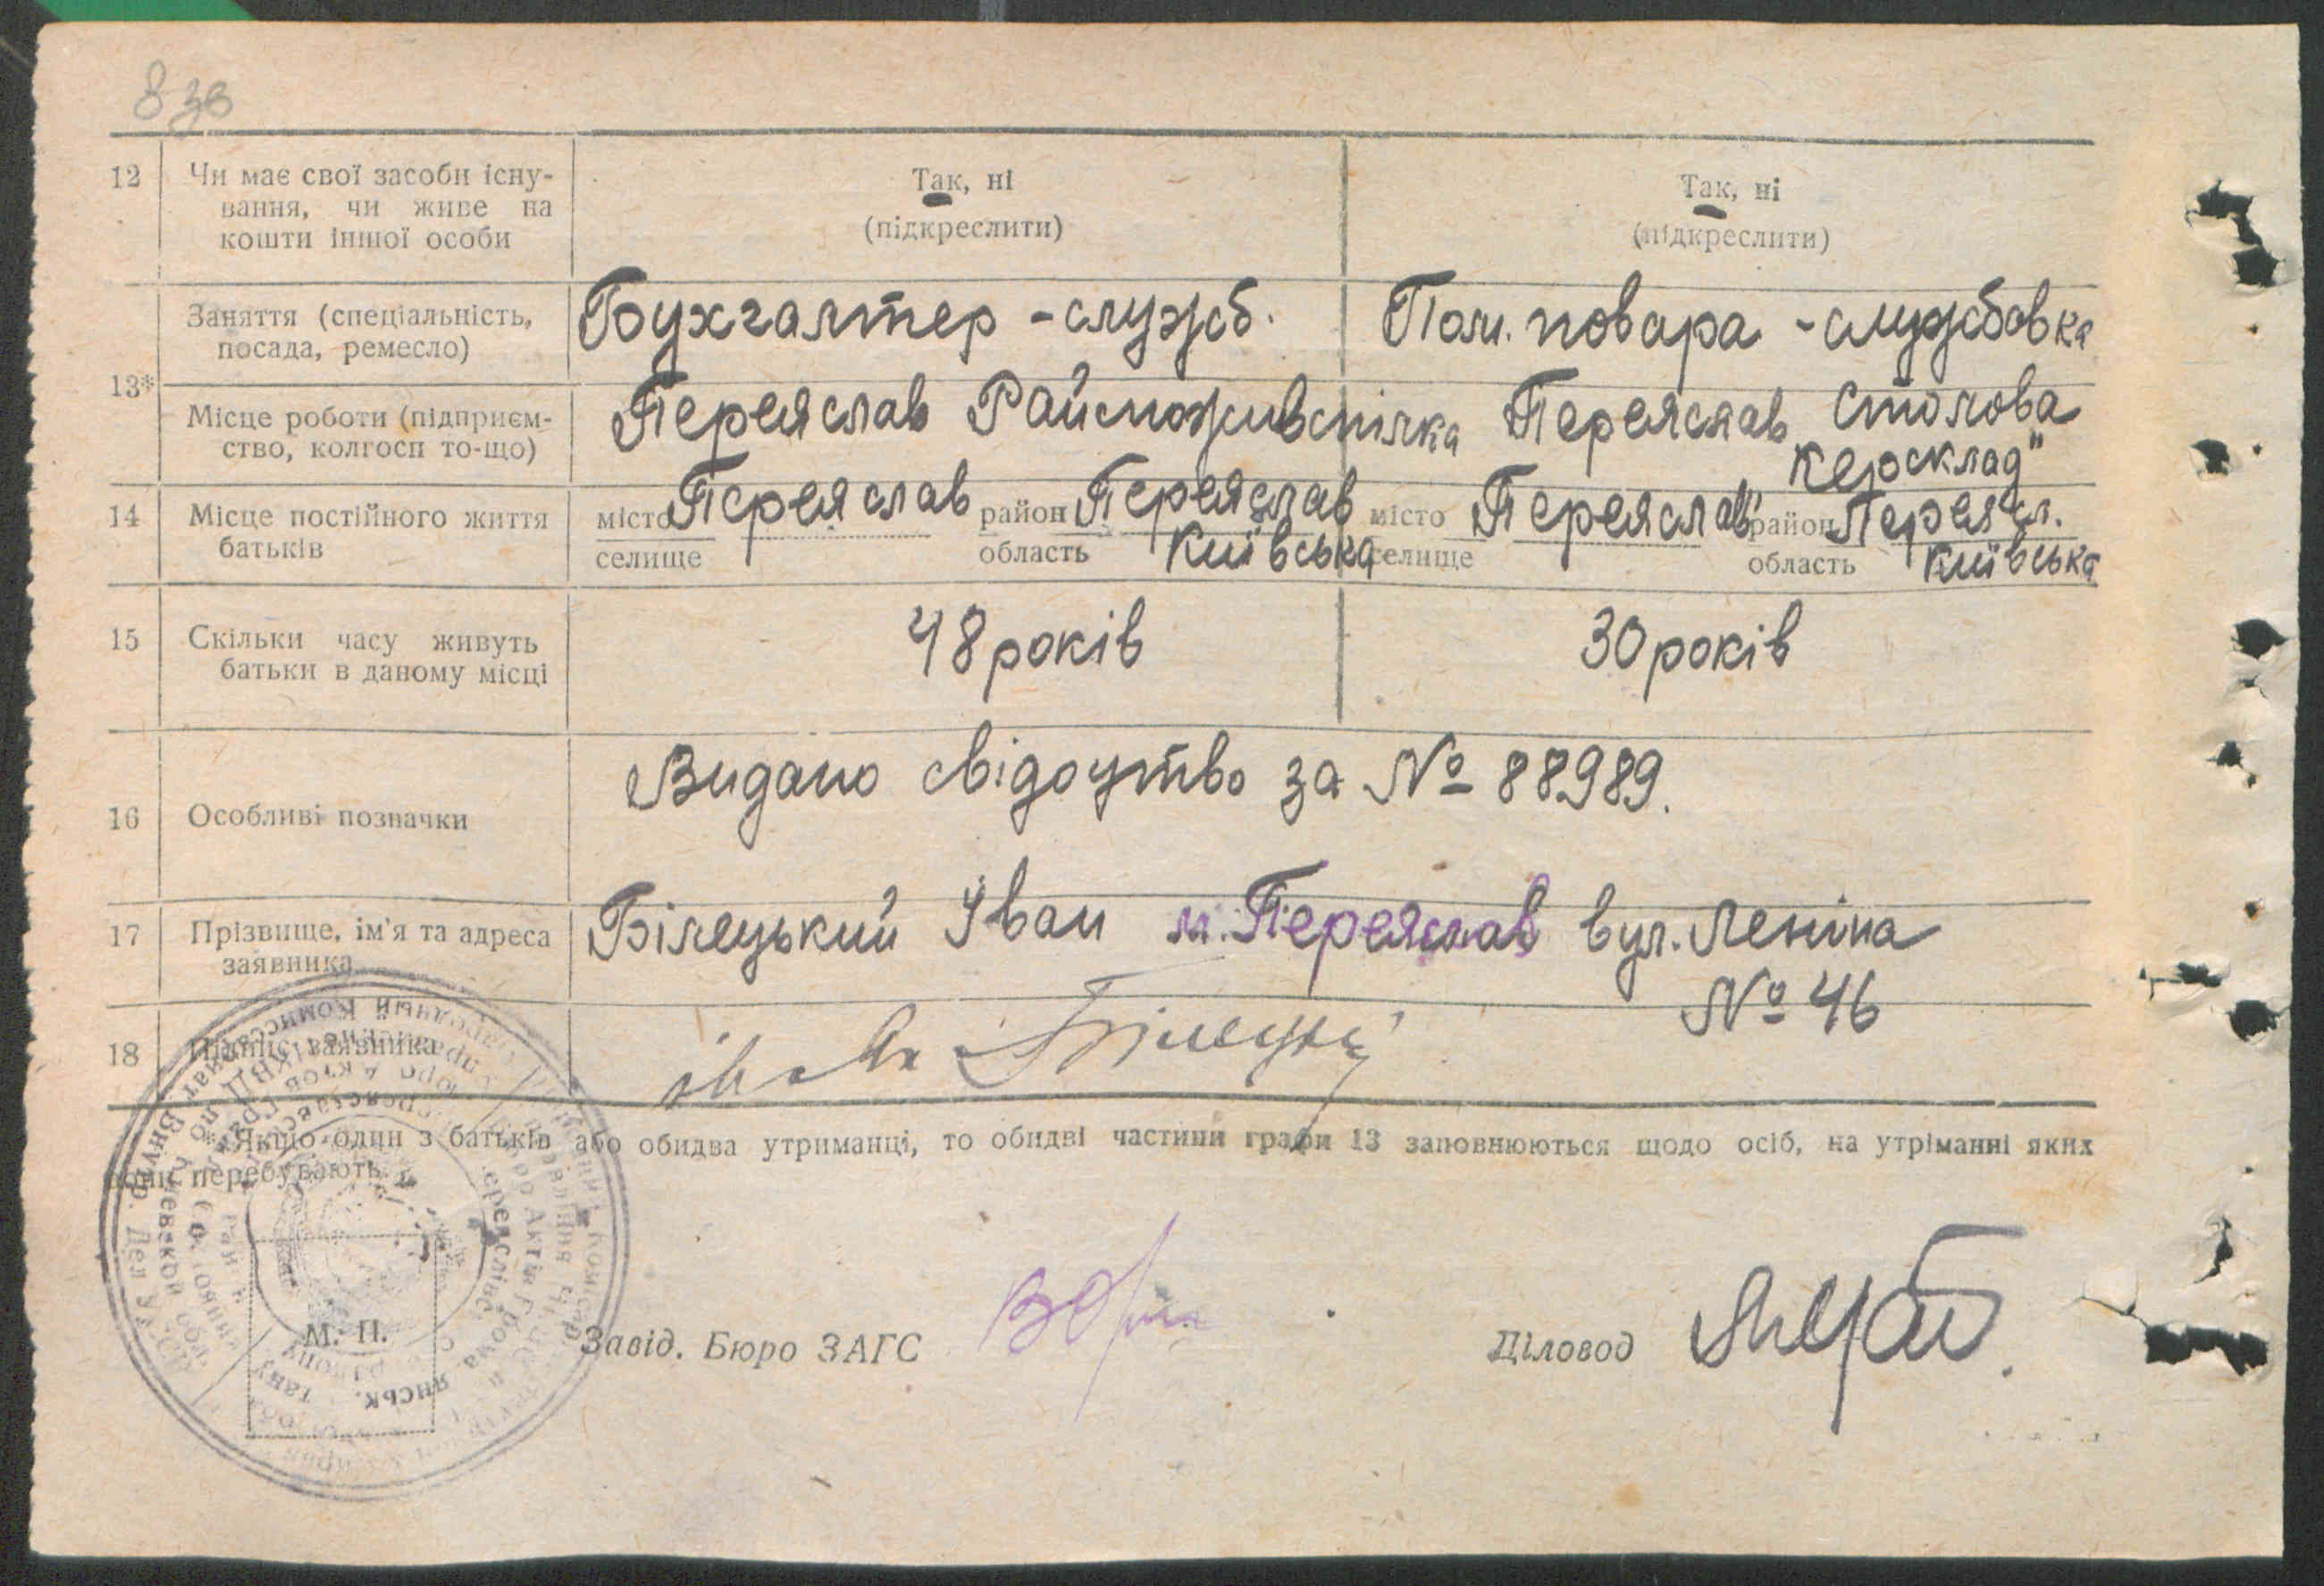 8 зв
12 Чи має свої засоби існу- Так, ні Так, ні
вання, чи живе на (підкреслити) (підкреслити)
кошти іншої особи
13* Заняття (спеціальність, Бухгалтер - служб. Пом. повара - службовка
посада, ремесло)
Місце роботи (підприєм- Переяслав Райспоживспілка Переяслав Столова
ство, колгосп то-що) „Керосклад"
14 Місце постійного життя місто Переяслав район Переяслав місто Переяслав район Переясл.
батьків селище область Київська селище область Київська
15 Скільки часу живуть 48 років 30 років
батьки в даному місці
16 Особливі позначки Видано свідоцтво за № 88989.
17 Прізвище, ім'я та адреса Білецький Іван м. Переяслав вул. Леніна
заявника № 46
18 Підпис заявника Білецький
* Якщо один з батьків або обидва утриманці, то обидві частини графи 13 заповнюються щодо осіб, на утріманні яких
вони перебувають.
М. П.
Завід. Бюро ЗАГС Діловод